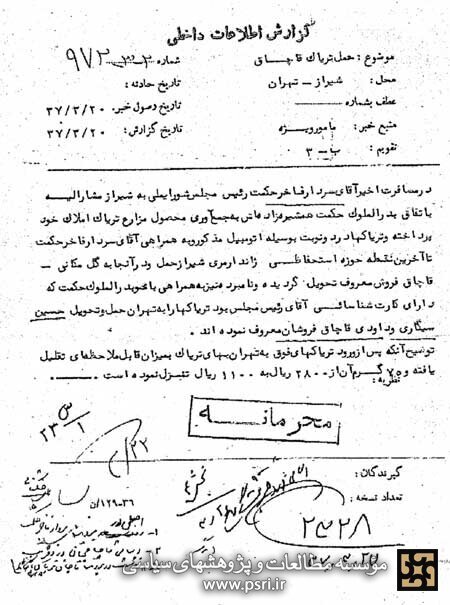 گزارش اطلاعات داخلی
موضوع : حمل تریاك قاچاق
شماره ۹۷۲
محل : شیراز - تهران
تاریخ حادثه :
عطف بشماره
تاریخ وصول خبر : ۳۷/۳/۲۰
منبع خبر : مامور ویژه
تاریخ گزارش : ۳۷/۳/۲۰
تقویم : ب - ۳
در مسافرت اخیر آقای سردار فاخر حکمت رئیس مجلس شورایملی به شیراز مشارالیه
باتفاق بدرالملوك حکمت همشیرهزاده‌اش به جمع‌آوری محصول مزارع تریاك املاك خود
پرداخته و تریاکها در دو نوبت بوسیله اتومبیل مذکور و به همراهی آقای سردار فاخر حکمت
تا آخرین نقطه حوزه استحفاظی ژاندارمری شیراز حمل و در آنجا به گل مکانی -
قاچاق فروش معروف تحویل گردیده و نامبرده نیز به همراهی بانو بدرالملوك حکمت که
دارای کارت شناسائی آقای رئیس مجلس بود تریاکها را به تهران حمل و تحویل حسین
سیگاری و داودی قاچاق فروشان معروف نموده اند.
توضیح آنکه پس از ورود تریاکهای فوق به تهران بهای تریاك بمیزان قابل ملاحظه‌ای تقلیل
یافته و ۷۵ گرم آن از ۲۸۰۰ ریال به ۱۱۰۰ ریال تنزل نموده است
نظریه :
محرمانه
گیرندگان :
تعداد نسخه :
۲۳۲۸
مؤسسه مطالعات و پژوهشهای سیاسی
www.psri.ir